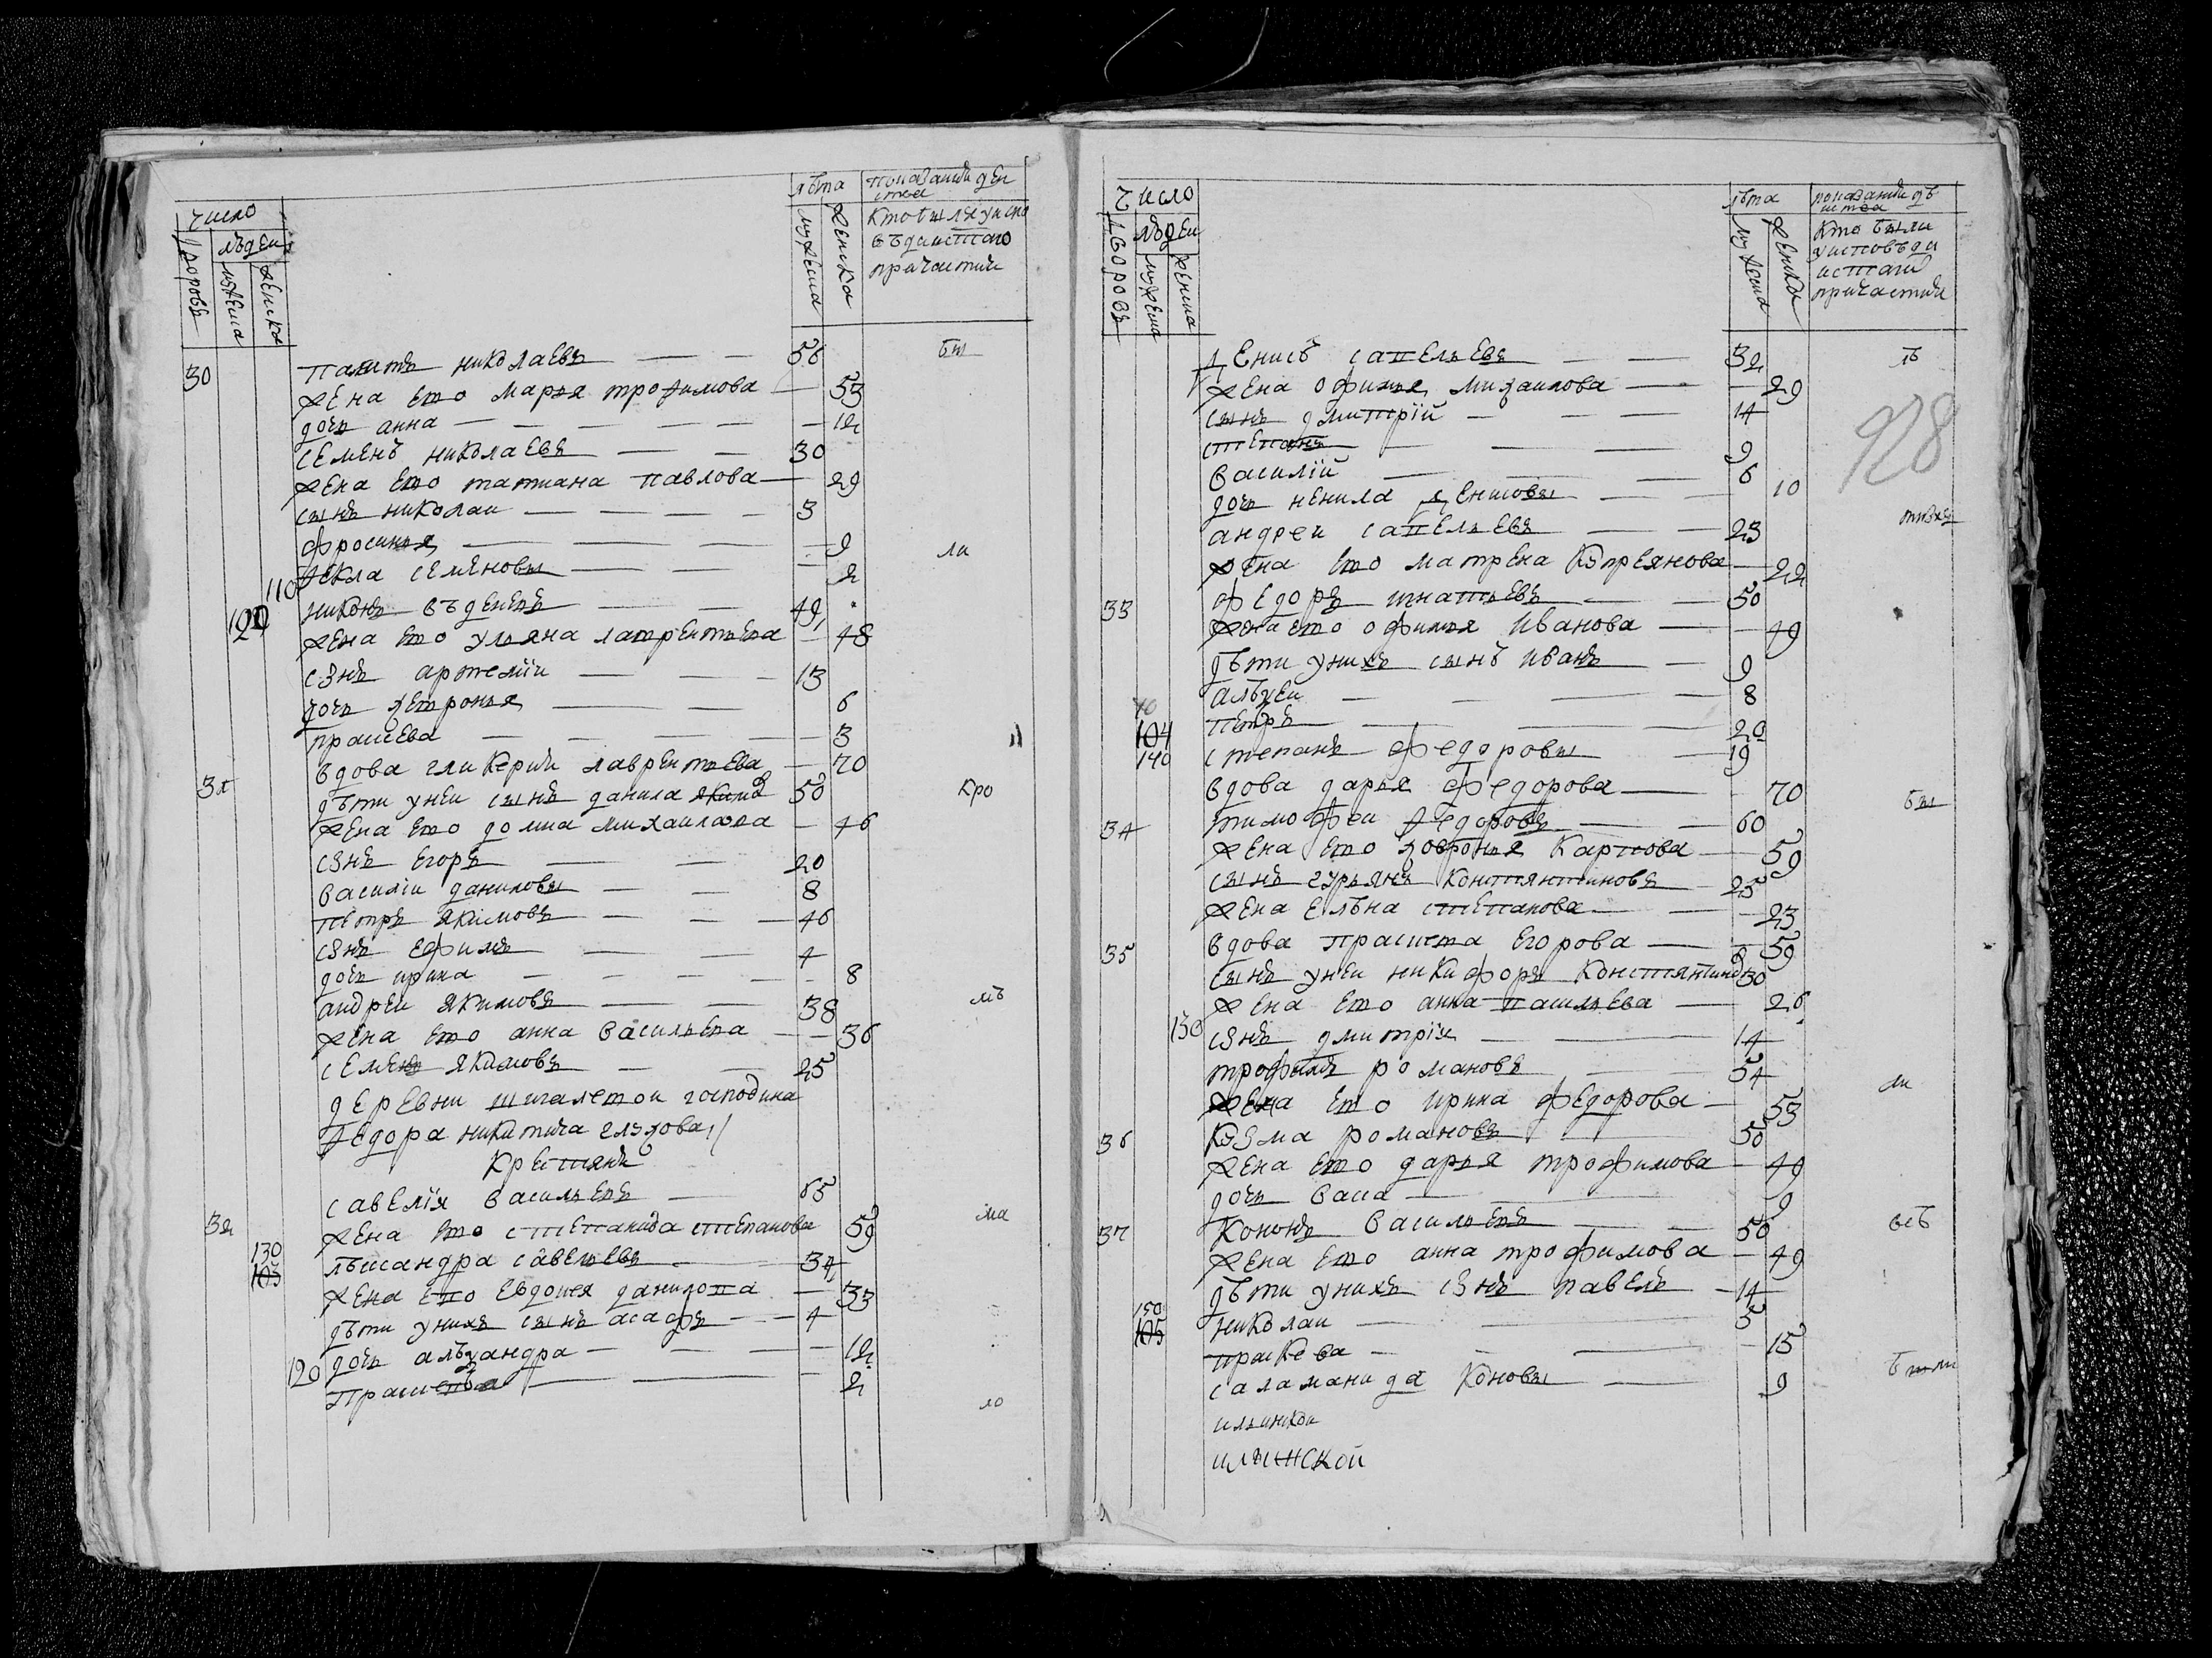 число
людеи
дворовъ
мужеска
женска
лѣта
показании деиства
мужеска
женска
кто был я у испо
вѣди и стаго
причастия
30 никитъ николаевъ 56 бы
жена ево марья трофимова 53
дочь анна 12
семенъ николаевъ 30
жена ево татиана павлова 29
сынъ николаи 3
фросинья 9 ли
110 фекла семеновы 2
120 никонъ 49
жена ево ульяна лаврентьева 48
сынъ артемїи 13
дочь фетронья 6
праскева 3
вдова гликерия лаврентьева 70
31 дѣти у неи сынъ данила якимов 50 кро
жена ево домна михаилова 46
сынъ егоръ 20
василїи даниловы 8
петръ якимовъ 46
сынъ ефимъ 4
дочь ирина 8
андреи якимовъ 38 мѣ
жена ево анна васильева 36
семенъ якимовъ 25
деревни шигалетои господина
федора никитича глѣбова
крестянъ
32 савелїя васильевъ 65
жена ево степанида степанова 59 ма
130 105 лѣксандра савельевъ 34
жена ево евдокея данилова 33
дѣти у нихъ сынъ асафъ 4
120 дочь альѯандра 12
праскева 2 ло
число
дворовъ
людеи
мужеска
женска
лѣта
показании дѣ
иства
мужеска
женска
кто были
у исповѣди
и стаги
причастия
денисъ савельевъ 32 ѣ
жена офимья михаилова 29
сынъ дмитрїй 14
степанъ 9
василїй 6
дочь ненила денисовы 10
928
андреи савельевъ 23
жена ево матрена купреянова 22
33 федоръ игнатьевъ 50
жена ево офимья иванова 49
дѣти у нихъ сынъ иванъ 9
алѣѯеи 8
104 петръ 20
140 степанъ федоровы 19
вдова дарья федорова 70
34 тимофеи федоровъ 60 бы
жена ево ховронья карпова 59
сынъ гурьянъ констянтиновъ 25
жена елѣна степанова 23
35 вдова праскева егорова 59
сынъ у неи никифоръ констянтинов 30
жена ево анна васильева 26
130 сынъ дмитрїи 14
трофимъ романовъ 54
жена ево ирина федорова 53 ли
36 кузма романовъ 50
жена ево дарья трофимова 49
дочь васа 9
37 кононъ васильевъ 50 всѣ
жена ево анна трофимова 49
дѣти у нихъ сынъ павелъ 14
150 105 николаи 5
праскева 15
саламанида коновы 9 были
ильинкои
ильинской